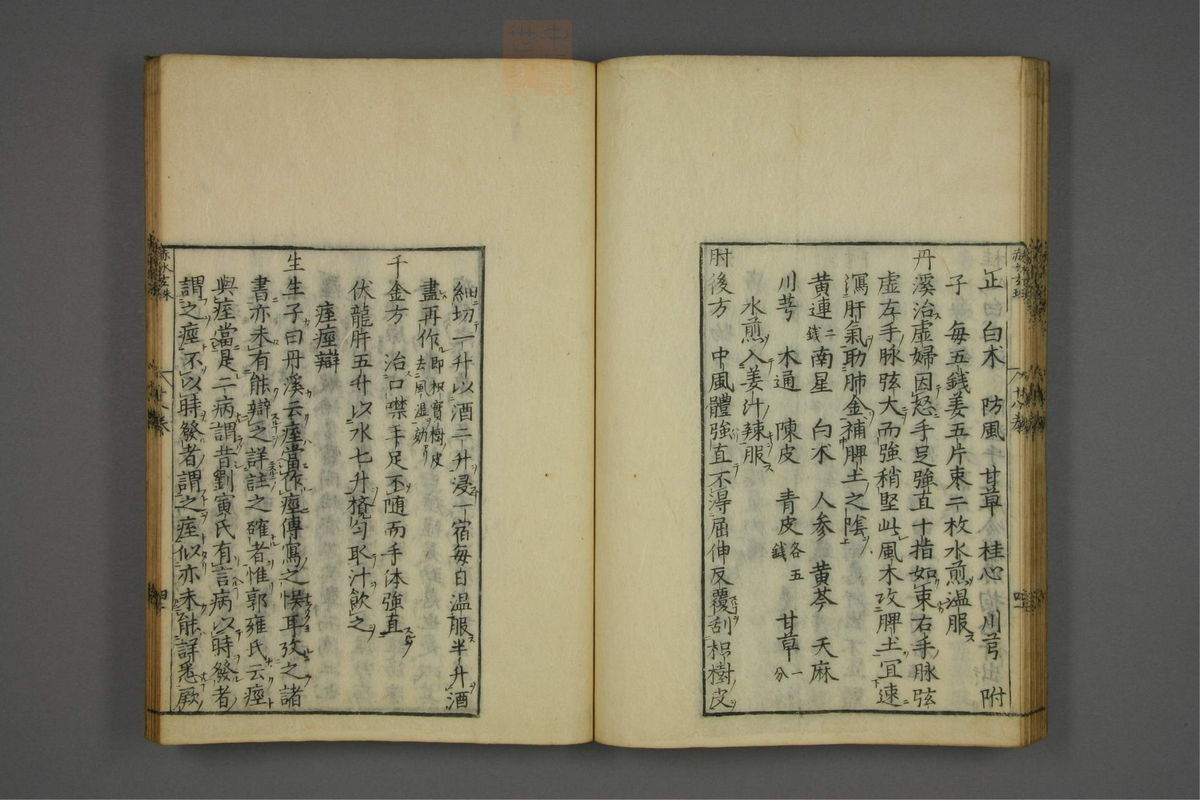 正 白朮 防風 甘草 桂心 川芎 附
子 每五錢姜五片棗二枚水煎溫服
丹溪治虛婦因怒手足強直十指如束右手脉弦
虛左手脉弦大而強稍堅此風木攻脾土宜速
瀉肝氣助肺金補脾土之陰
黄連二錢 南星 白朮 人参 黄芩 天麻
川芎 木通 陳皮 青皮各五錢 甘草一分
水煎入姜汁辣服
肘後方 中風體強直不得屈伸反覆刮枳樹皮
細切一升以酒二升浸一宿每日溫服半升酒
盡再作即枳實樹皮去風濕効
千金方 治口噤手足不随而手体強直
伏龍肝五升以水七升攪匀取汁飲之
痓痙辯
生生子曰丹溪云痓當作痙傳寫之悞耳攷之諸
書亦未有能辯之詳註之確者惟郭雍氏云痙
與痓當是二病謂昔劉寅氏有言病以時發者
謂之痙不以時發者謂之痓似亦未能詳悉厥